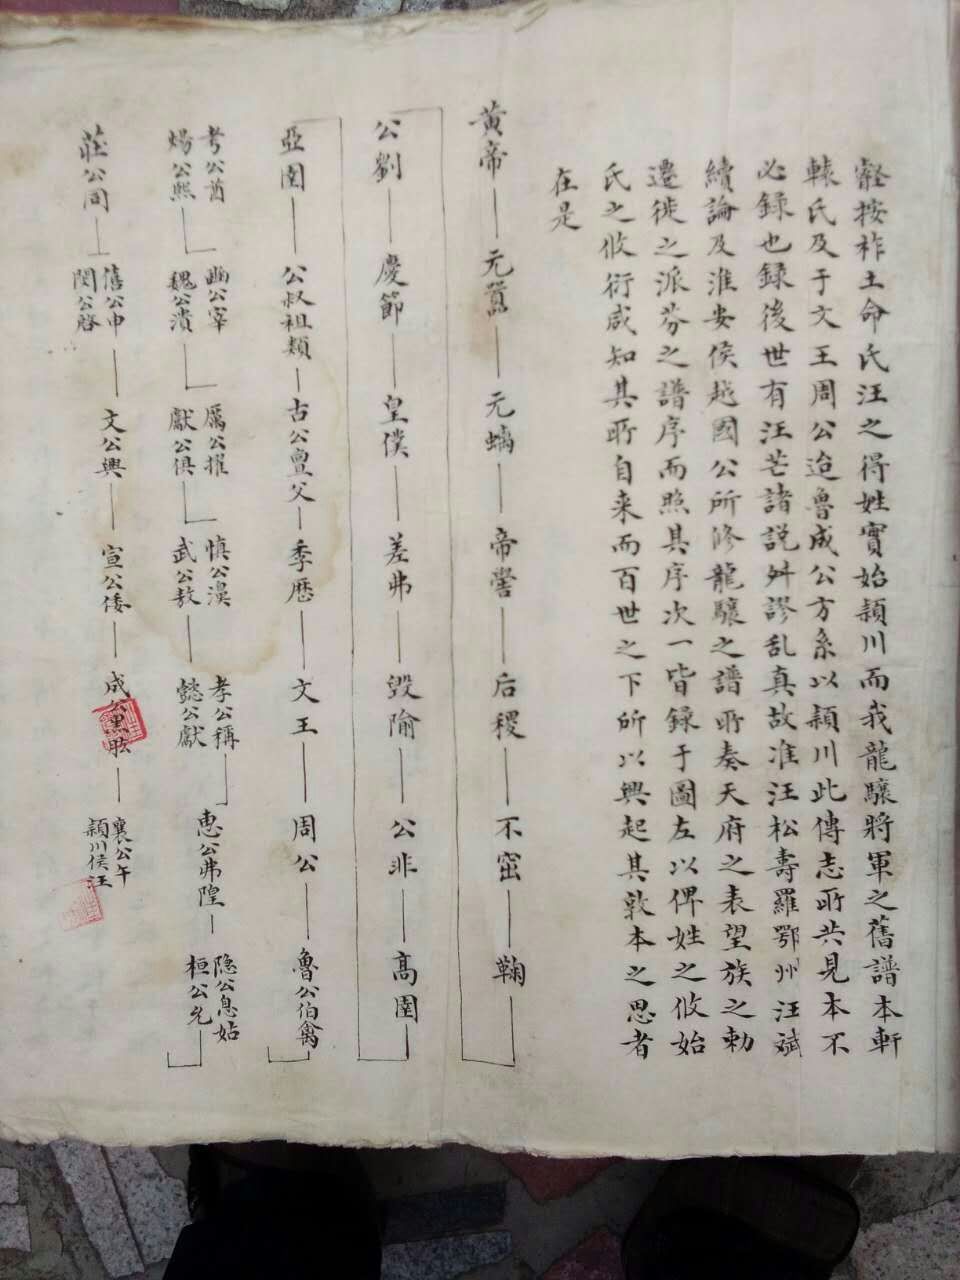 按祚土命氏汪之得姓實始潁川而我龍驤將軍之舊譜本軒
轅氏及于文王周公迨魯成公方系以潁川此傳志所共見本不
必録也録後世有汪芒諸説舛謬乱真故准汪松壽羅鄂州汪斌
續論及淮安侯越國公所修龍驤之譜所奏天府之表望族之勅
遷徙之派芬之譜序而照其序次一皆録于圖左以俾姓之攸始
氏之攸衍咸知其所自来而百世之下所以興起其敦本之思者
在是
黃帝 元囂 元蟜 帝嚳 后稷 不窋 鞠
公劉 慶節 皇僕 差弗 毁隃 公非 高圉
亞圉 公叔祖類 古公亶父 季歷 文王 周公 魯公伯禽
考公酋 幽公宰 厲公擢 慎公濞 孝公稱 惠公弗隍 隐公息姑
煬公熙 魏公潰 獻公俱 武公敖 懿公獻 桓公允
莊公同 僖公申 文公興 宣公倭 成公黑肱 襄公午
閔公啓 潁川侯汪